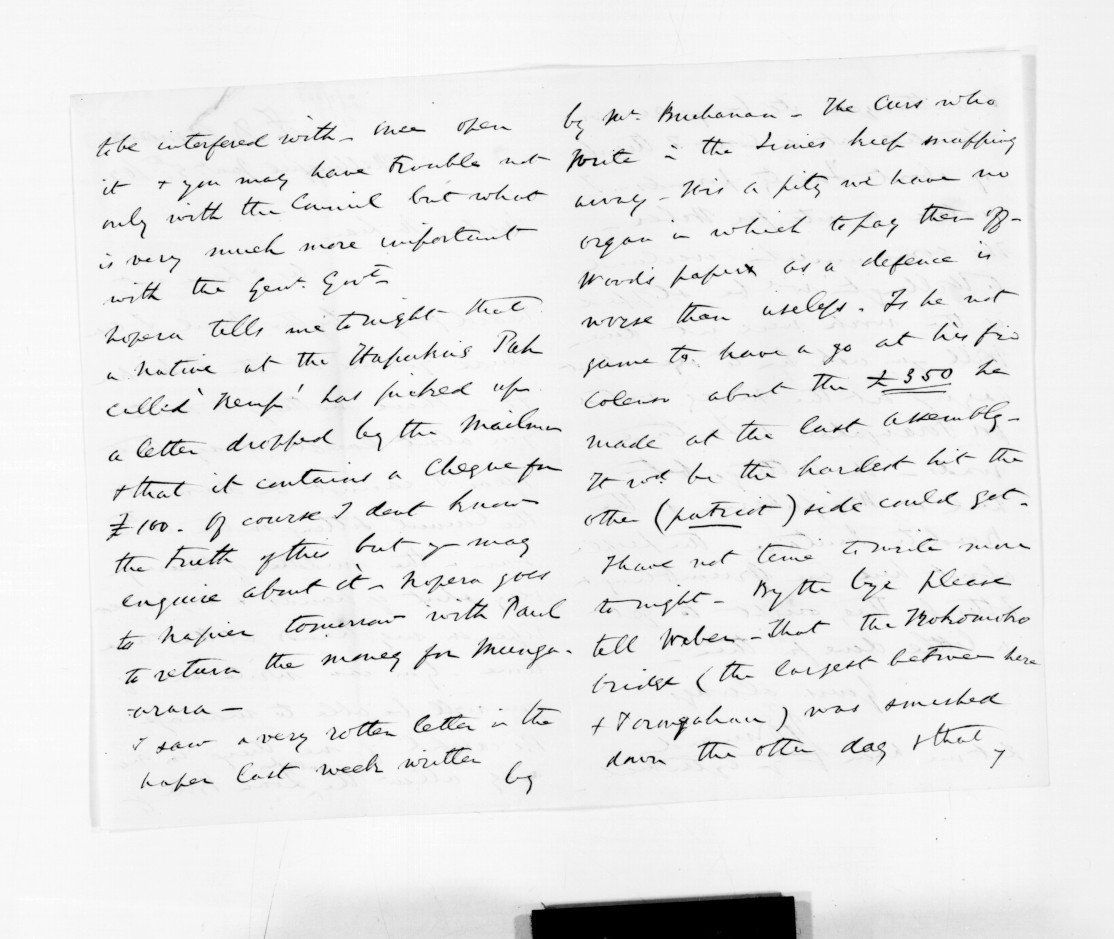 to be interfered with - once open
it & you may have trouble not
only with the Council but what
is very much more important
with the Genl. Govt-
Hopera tells me tonight that
a Native at the Hapukas Pah
called 'Kemp' has picked up
a letter dropped by the Mailman
& that it contains a Cheque for
£100 - Of course I dont know
the truth of this but you may
enquire about it - Hopera goes
to Napier tomorrow with Paul
to return the money for Munga-
-arara -
I saw a very rotten letter in the
paper last week written
by
by Mr. Buchanan - The Curs who
write in the Times keep snapping
away - It is a pity we have no
organ in which to pay them off -
Wood's paper as a defence is
worse than useless. Is he not
game to have a go at his fri
Colenso about the £350 he
made at the last Assembly -
It wod. be the hardest hit the
other (patriot) side could get.
I have not time to write more
tonight - By the bye please
tell Weber - that the
bridge (the largest between here
&) was smashed
down the other day & that